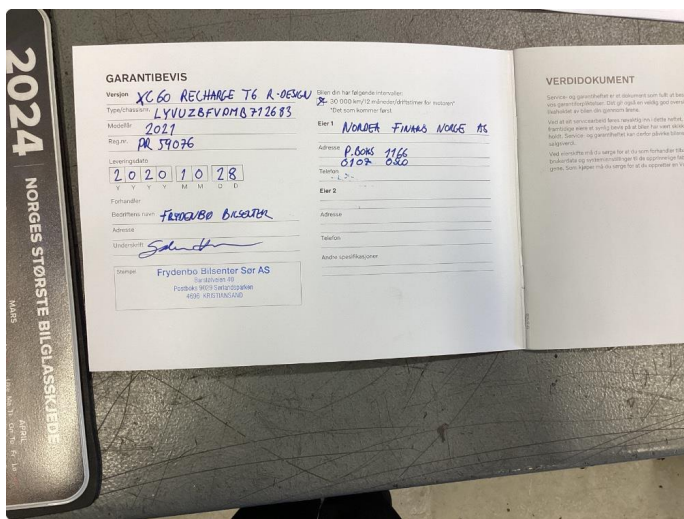 2024
NORGES STØRSTE BILGLASSKJEDE
MARS
APRIL
GARANTIBEVIS
Versjon XC60 RECHARGE T6 R-DESIGN
Type/chassisnr. LYVUZBFVDMB712683
Modellår 2021
Reg.nr. PR 59076
Leveringsdato
2 0 2 0 1 0 2 8
Y Y Y Y M M D D
Forhandler
Bedriftens navn FRYDENBØ BILSENTER
Adresse
Underskrift
Stempel
Frydenbø Bilsenter Sør AS
Barstølveien 48
Postboks 9629 Sørlandsparken
4696 KRISTIANSAND
Bilen din har følgende intervaller:
30 000 km/12 måneder/driftstimer for motoren*
*Det som kommer først
Eier 1 NORDEA FINANS NORGE AS
Adresse P.BOKS 1166
0107 OSLO
Telefon
Eier 2
Adresse
Telefon
Andre spesifikasjoner
VERDIDOKUMENT